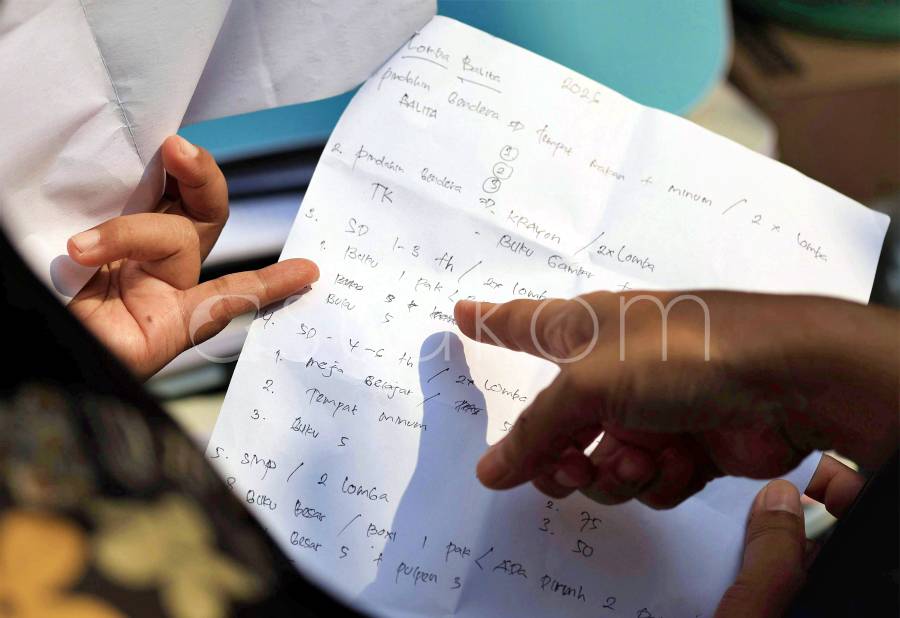 Lomba Balita 2025
pindahin Bendera => Tempat makan + minum / 2 x lomba
BALITA
1
2
3
2. pindahin Bendera => KRAYON / 2x lomba
TK - BUKU Gambar
3. SD 1-3 th / 2x lomba
1. BUKU 1 pak <
BUKU 5
4. SD - 4-6 th / 2x lomba
1. meja Belajar
2. Tempat minum
3. BUKU 5
5. SMP / 2 lomba
2. 75
3. 50
BUKU Besar / Boxi 1 pak < ADA 2
Besar 5 + pulpen 3
asaukom